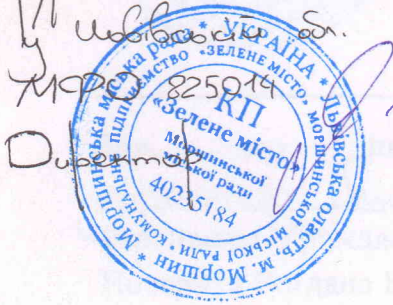 у Львівській обл.
МФО 825014
Директор
* УКРАЇНА * Львівська область, м. Моршин * Моршинська міська рада
КОМУНАЛЬНЕ ПІДПРИЄМСТВО «ЗЕЛЕНЕ МІСТО» МОРШИНСЬКОЇ МІСЬКОЇ РАДИ
КП
«Зелене місто»
Моршинської
міської ради
40235184